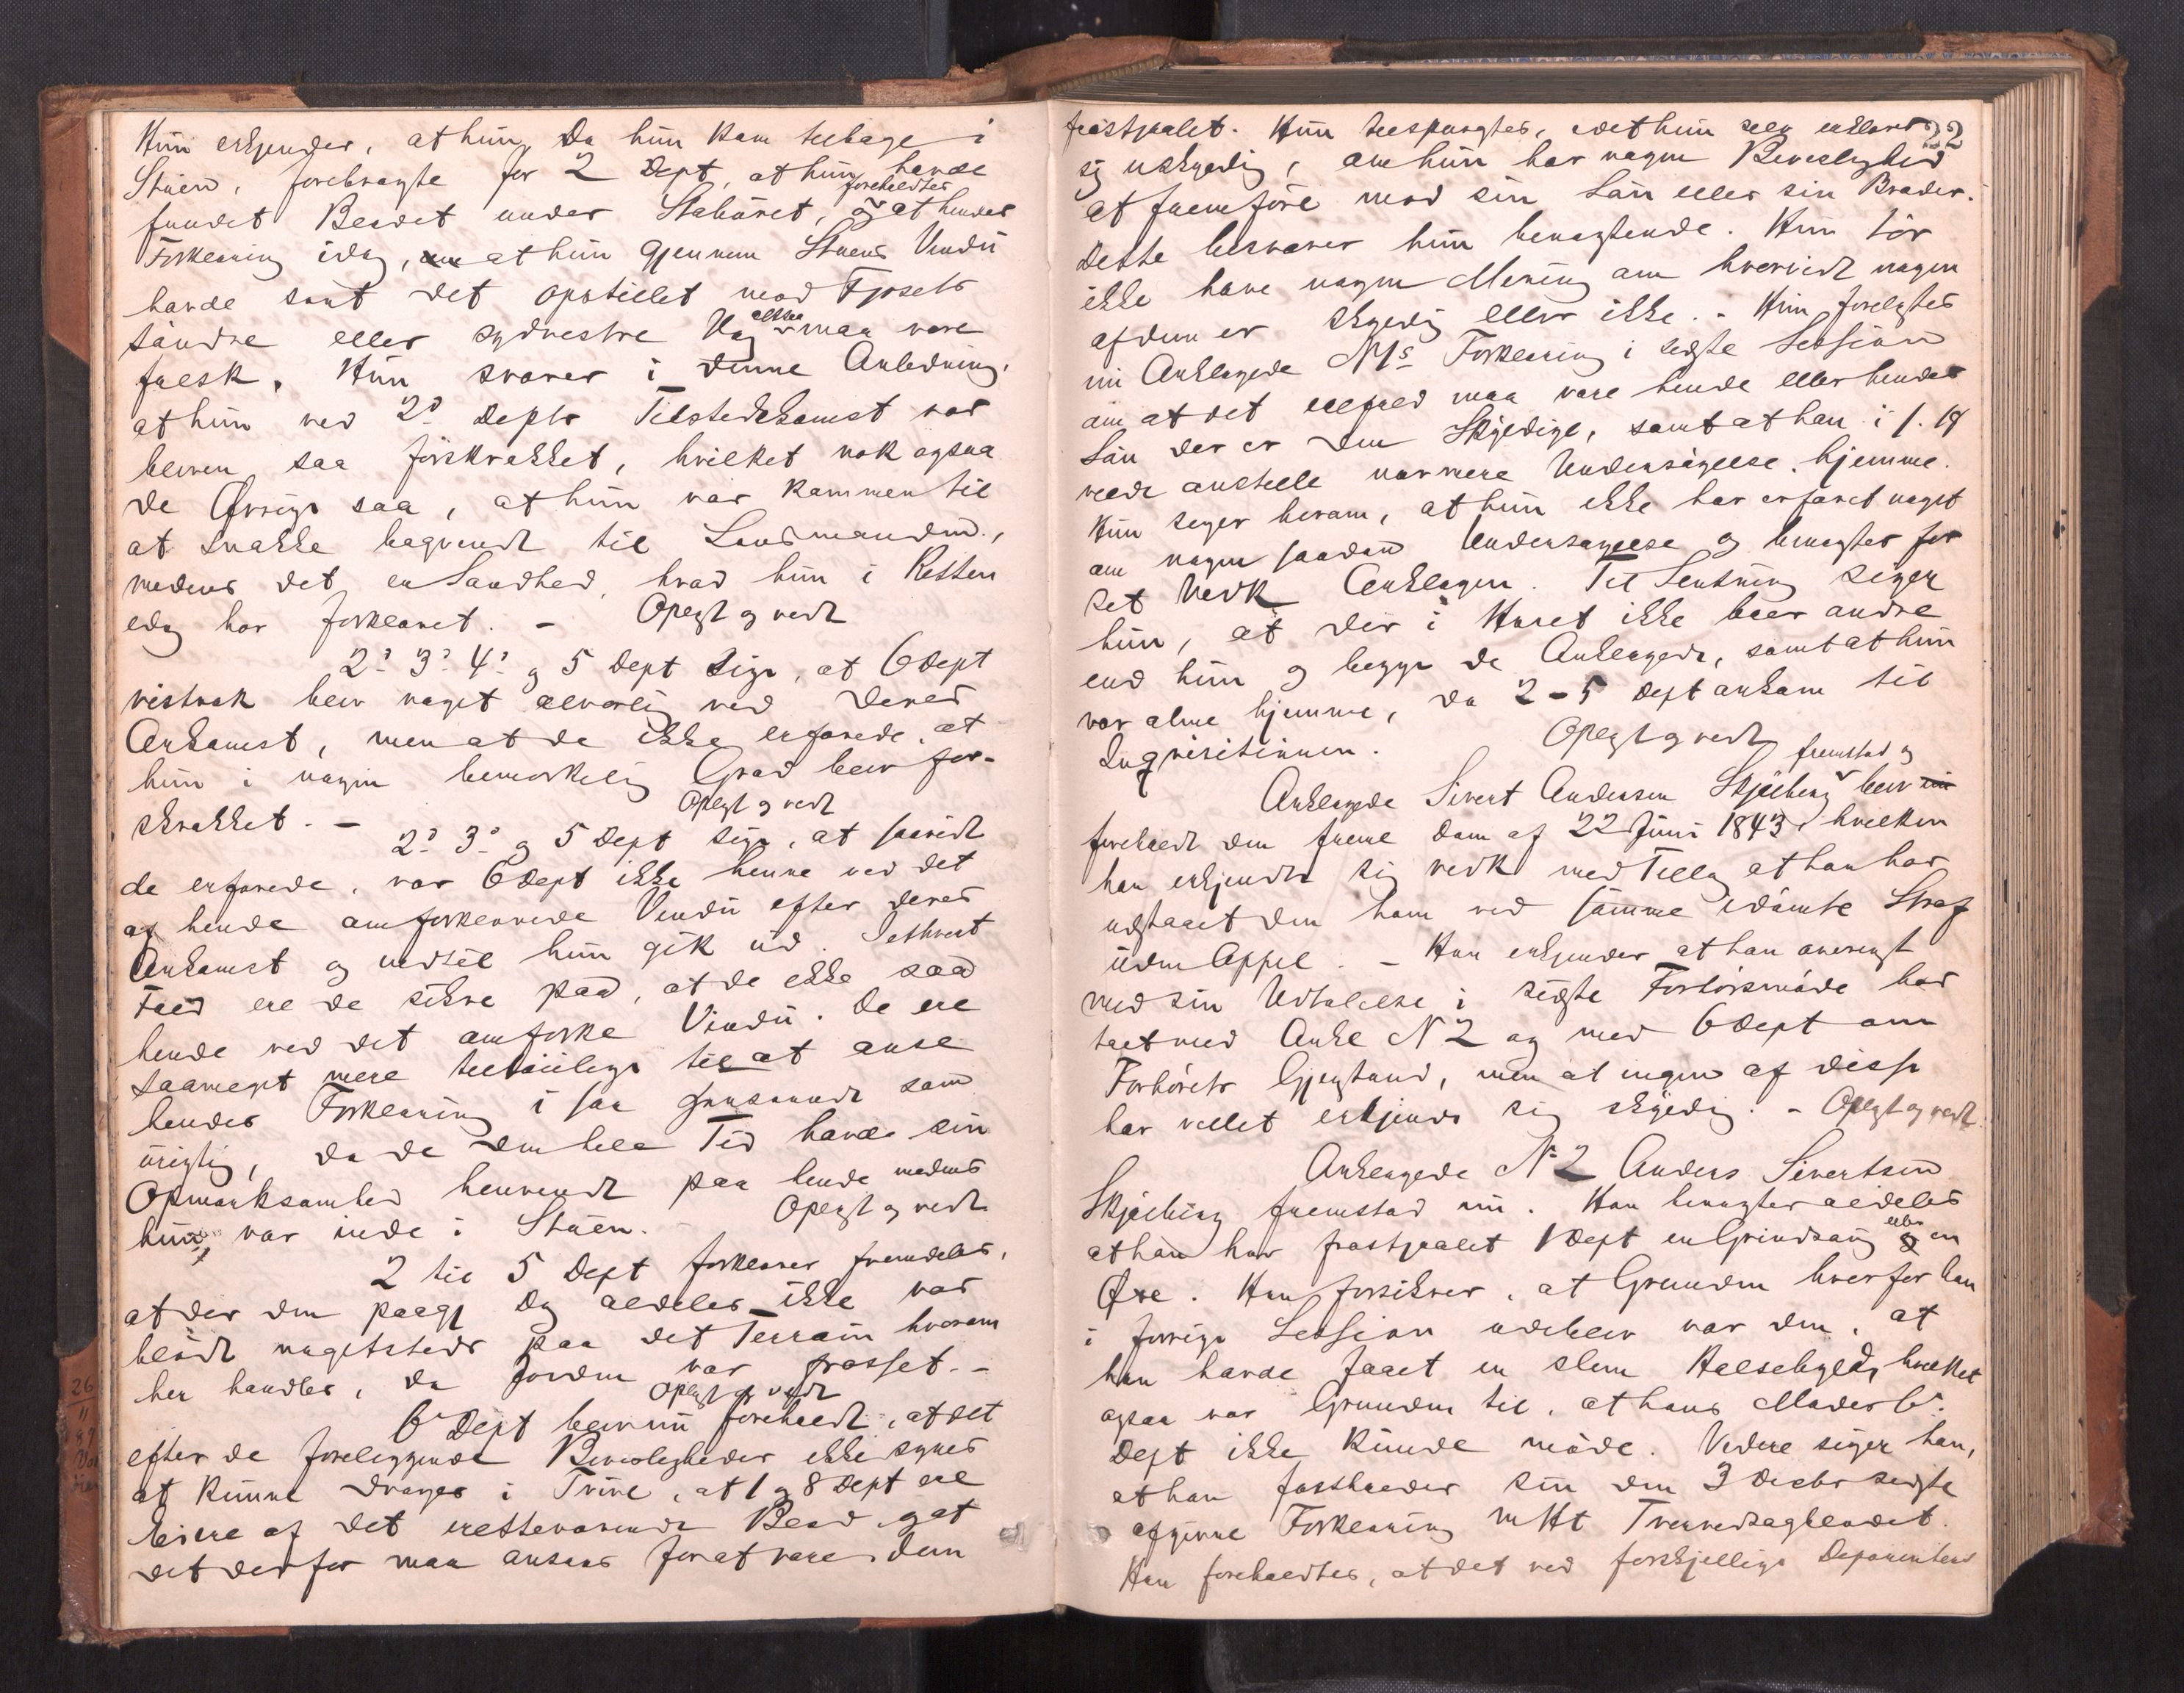 Hun erkjender, at hun, da hun kom tilbage i
Stuen, forebragte for 2 Dept, at hun havde
fundet Bordet under Stabúret, foreholdtes
og at hendes
Forklaring idag, at hun gjennem Stuens Vindú
havde seet det opstillet mod Fjøsets
søndre eller sydvestre Væg altsaa maa være
falsk. Hún svarer i denne Anledning,
at hún ved 2' Depts Tilstedekomst var
bleven saa forskrækket, hvilket nok ogsaa
de Øvrige saa, at hún var kommen til
at snakke bagvendt til Lensmanden,
medens det er Sandhed, hvad hún i Retten
idag har forklaret. - Oplæst og vedt
2' 3' 4' og 5 Dept sige, at 6 Dept
vistnok blev noget alvorlig ved deres
Ankomst, men at de ikke erfarede, at
hún i nogen bemærkelig Grad blev for-
skrækket. - Oplæst og vedt
2' 3' og 5 Dept sige, at saavidt
de erfarede, var 6 Dept ikke henne ved det
af hende omforklarede Vindú efter deres
Ankomst og indtil hún gik úd. I ethvert
Fald ere de sikre paa, at de ikke saa
hende ved det omforkl Vindú. De ere
saameget mere tilbøielige til at anse
hendes Forklaring i saa Henseende som
urigtig, da de den hele Tid havde sin
Opmærksomhed henvendt paa hende medens
hun var inde i Stúen. - Oplæst og vedt.
2 til 5 Dept forklarer fremdeles,
at der den paagj Dag aldeles ikke var
blødt nogetsteds paa det Terrain hvorom
her handles, da Jorden var frosset. -
Oplæst og vedt
6' Dept blev nú foreholdt, at det
efter de foreliggende Bevisligheder ikke synes
at kúnne drages i Tvivl, at 1 og 8 Dept ere
Eiere af det iretteværende Bord og at
det derfor maa ansees for at være dem
22
frastjaalet. Hún tilspurgtes, idet hún selv erklærer
sig uskyldig, om hún har nogen Bevislighed
at fremføre mod sin Søn eller sin Broder.
Dette besvarer hún benægtende. Hún tør
ikke have nogen Mening om hvorvidt nogen
af dem er skyldig eller ikke. - Hún forelagdes
nú Anklagede N 1s Forklaring i sidste Session
om at det ialfald maa være hende eller hendes
Søn der er den Skyldige, samt at han i f. 19
vilde anstille nærmere Undersøgelse hjemme.
Hún siger herom, at hún ikke har erfaret noget
om nogen saadan Undersøgelse og benægter for
sit Vedk Anklagen. Til Slutning siger
hún, at der i Húset ikke boer andre
end hún og begge de Anklagede, samt at hún
var alene hjemme, da 2-5 Dept ankom til
Inqvisitionen. Oplæst og vedt
Anklagede Sivert Andersen Skjølberg fremstod og
blev
foreholdt den frems Dom af 22 Júni 1843, hvilken
han erkjendte sig vedk med Tillæg at han har
udstaaet den ham ved samme idømte Straf
úden Appel. - Han erkjender at han overensst
med sin Udtalelse i sidste Forhørsmøde har
talt med Ankl N 2 og med 6 Dept om
Forhørets Gjenstand, men at ingen af disse
har villet erkjende sig skyldig. - Oplæst og vedt.
Anklagede N 2 Anders Sivertsen
Skjølberg fremstod nú. Han benægter aldeles
at han har frastjaalet 1 Dept en Grindsaug eller en
Øxe. Han forsikrer, at Grunden hvorfor han
i forrige Session udeblev var den, at
han havde faaet en slem Halsebyld, hvilket
ogsaa var Grunden til, at hans Moder 6'
Dept ikke kúnde møde. Videre siger han,
at han fastholder sin den 3 Decbr sidste
afgivne Forklaring m Ht Tverredsagbladet.
Han foreholdtes, at det ved forskjellige Deponenters